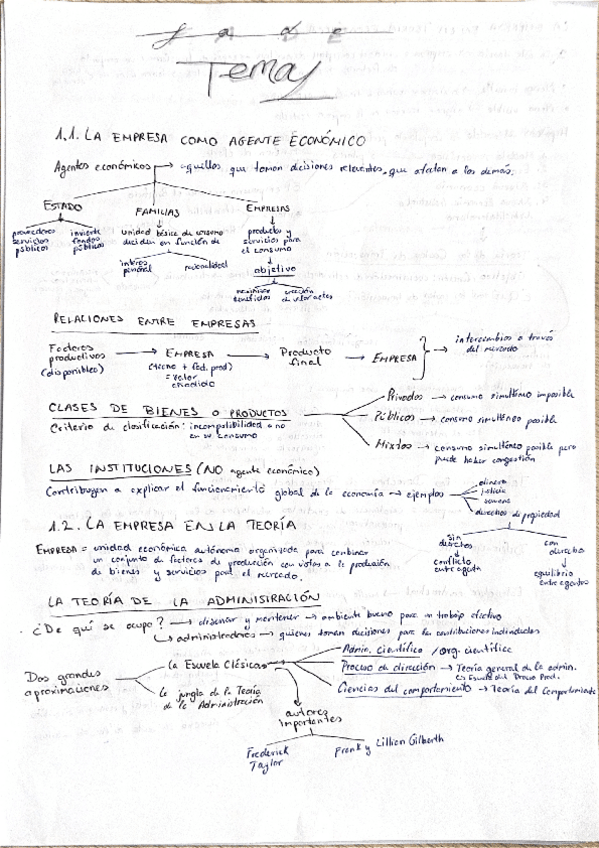 Tema 1
1.1. LA EMPRESA COMO AGENTE ECONÓMICO
Agentes económicos → aquellos que toman decisiones relevantes, que afectan a los demás.
ESTADO FAMILIAS EMPRESAS
proveedores servicios públicos
invierte fondos públicos
unidad básica de consumo deciden en función de
producto y servicios para el consumo
interés personal
racionalidad
objetivo
maximizar beneficios
creación de valor
RELACIONES ENTRE EMPRESAS
Factores productivos (disponibles) → EMPRESA (tecno + fact. prod) = valor añadido → Producto final → EMPRESA → intercambios a través del mercado
CLASES DE BIENES O PRODUCTOS
Criterio de clasificación: incompatibilidad o no en su consumo
Privados → consumo simultáneo imposible
Públicos → consumo simultáneo posible
Mixtos → consumo simultáneo posible pero puede haber congestión
LAS INSTITUCIONES (NO agente económico)
Contribuyen a explicar el funcionamiento global de la economía → ejemplos
dinero
justicia
derechos de propiedad
sin derechos
conflicto entre agentes
con derecho
equilibrio entre agentes
1.2. LA EMPRESA EN LA TEORÍA
EMPRESA = unidad económica autónoma organizada para combinar
un conjunto de factores de producción con vistas a la producción
de bienes y servicios para el mercado.
LA TEORÍA DE LA ADMINISIRACIÓN
¿De qué se ocupa? → disenar y mantener → ambiente bueno para un trabajo efectivo
→ administradores → quienes toman decisiones para las contribuciones individuales
Dos grandes aproximaciones
la Escuela Clásica
la jungla de la Teoría de la Administración
Admin. científica / org. científica
Proceso de dirección → Teoría general de la admin.
Ciencias del comportamiento → Teoría del Comportamiento
autores importantes
Frederick Taylor
Frank y Lillian Gilberth